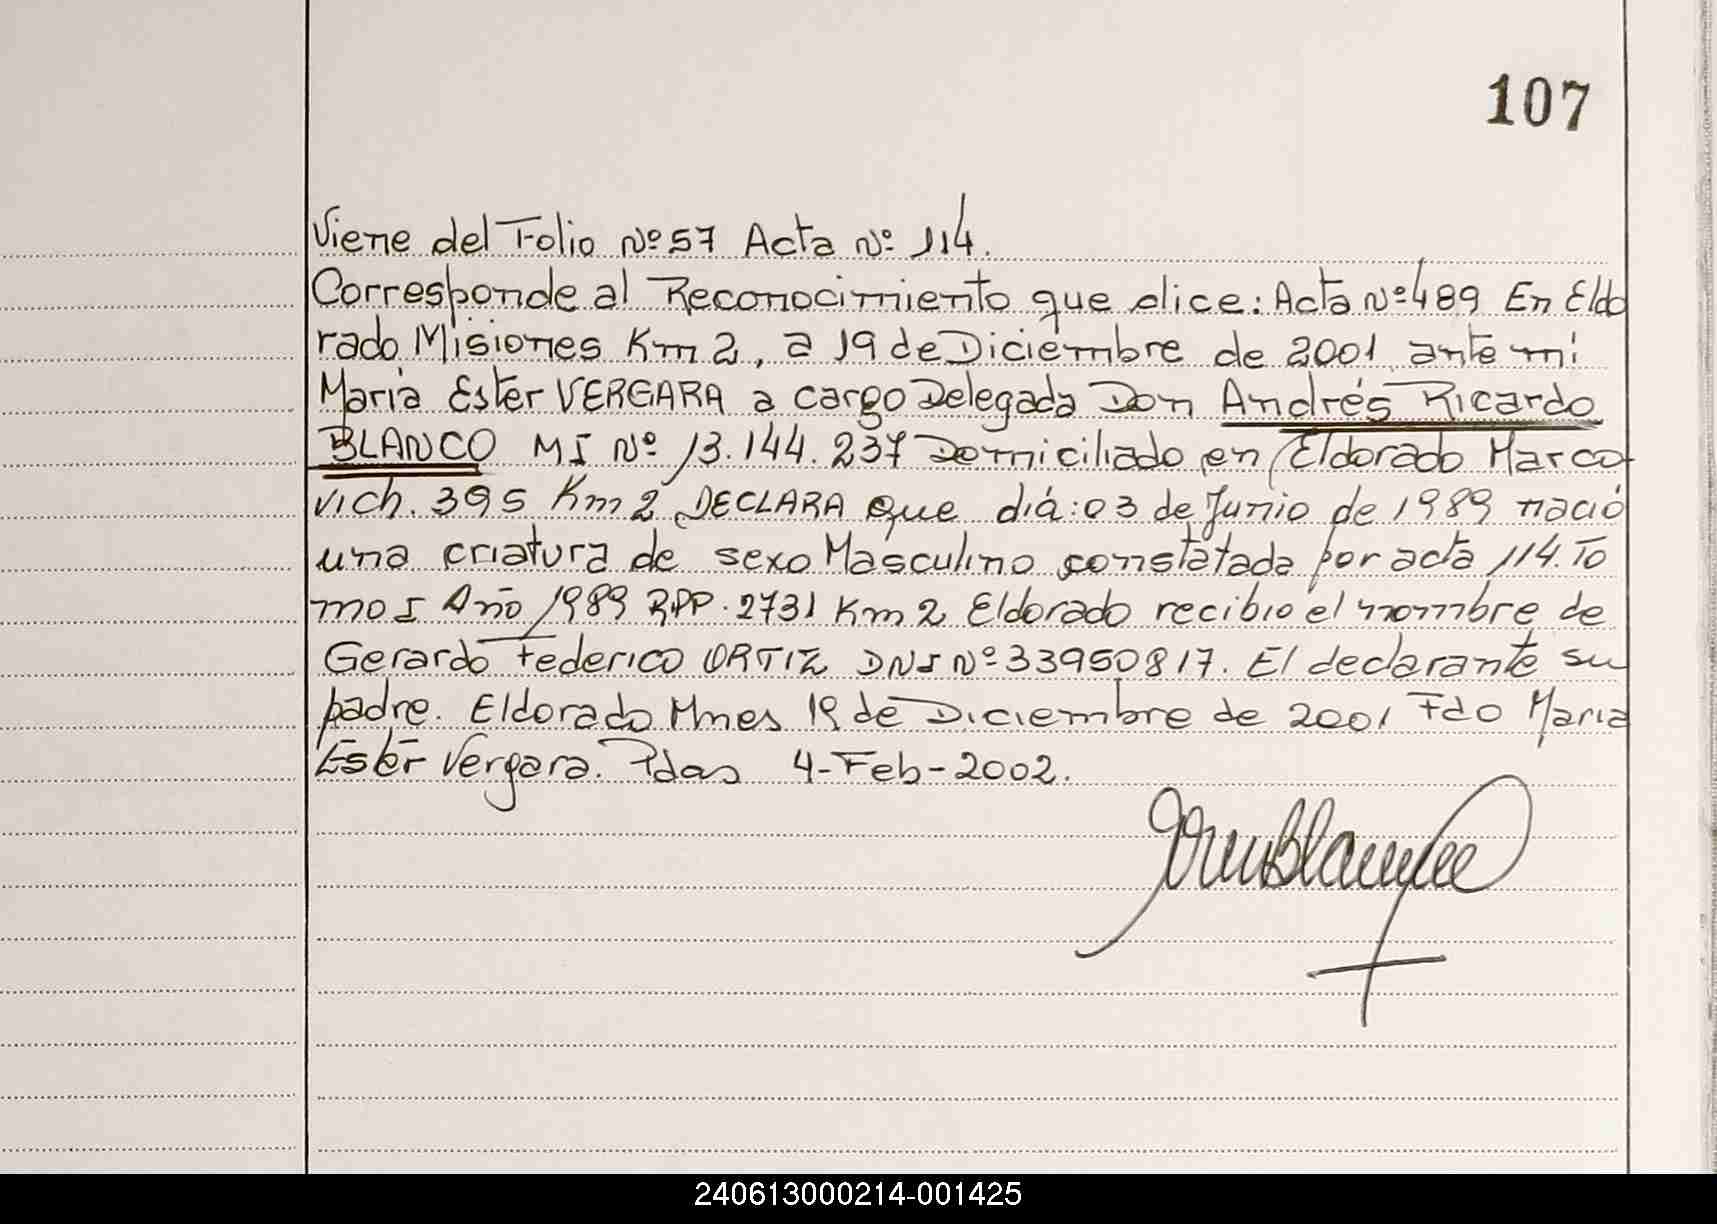 107
Viene del Folio Nº 57 Acta Nº 114.
Corresponde al Reconocimiento que dice: Acta Nº 489 En Eldo
rado Misiones Km 2, a 19 de Diciembre de 2001 ante mí
María Ester VERGARA a cargo Delegada Don Andrés Ricardo
BLANCO MI Nº 13.144.237 Domiciliado en Eldorado Marco
vich. 395 Km 2 DECLARA que día: 03 de Junio de 1989 nació
una criatura de sexo Masculino constatada por acta 114. To
mo I Año 1989 RPP. 2731 Km 2 Eldorado recibio el nombre de
Gerardo Federico ORTIZ DNI Nº 33950817. El declarante su
padre. Eldorado Mnes 19 de Diciembre de 2001 Fdo Maria
Ester Vergara. Pdas 4-Feb-2002.
240613000214-001425